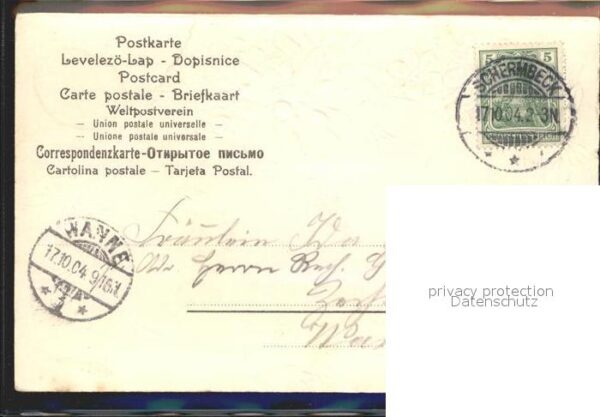 Postkarte
Levelezö-Lap - Dopisnice
Postcard
Carte postale - Briefkaart
Weltpostverein
- Union postale universelle -
- Unione postale universale -
Correspondenzkarte-Открытое письмо
Cartolina postale - Tarjeta Postal.
5 5
SCHERMBECK
17.10.04.2-3N
WANNE
17.10.04
Fräulein Ida
Herrn
privacy protection
Datenschutz